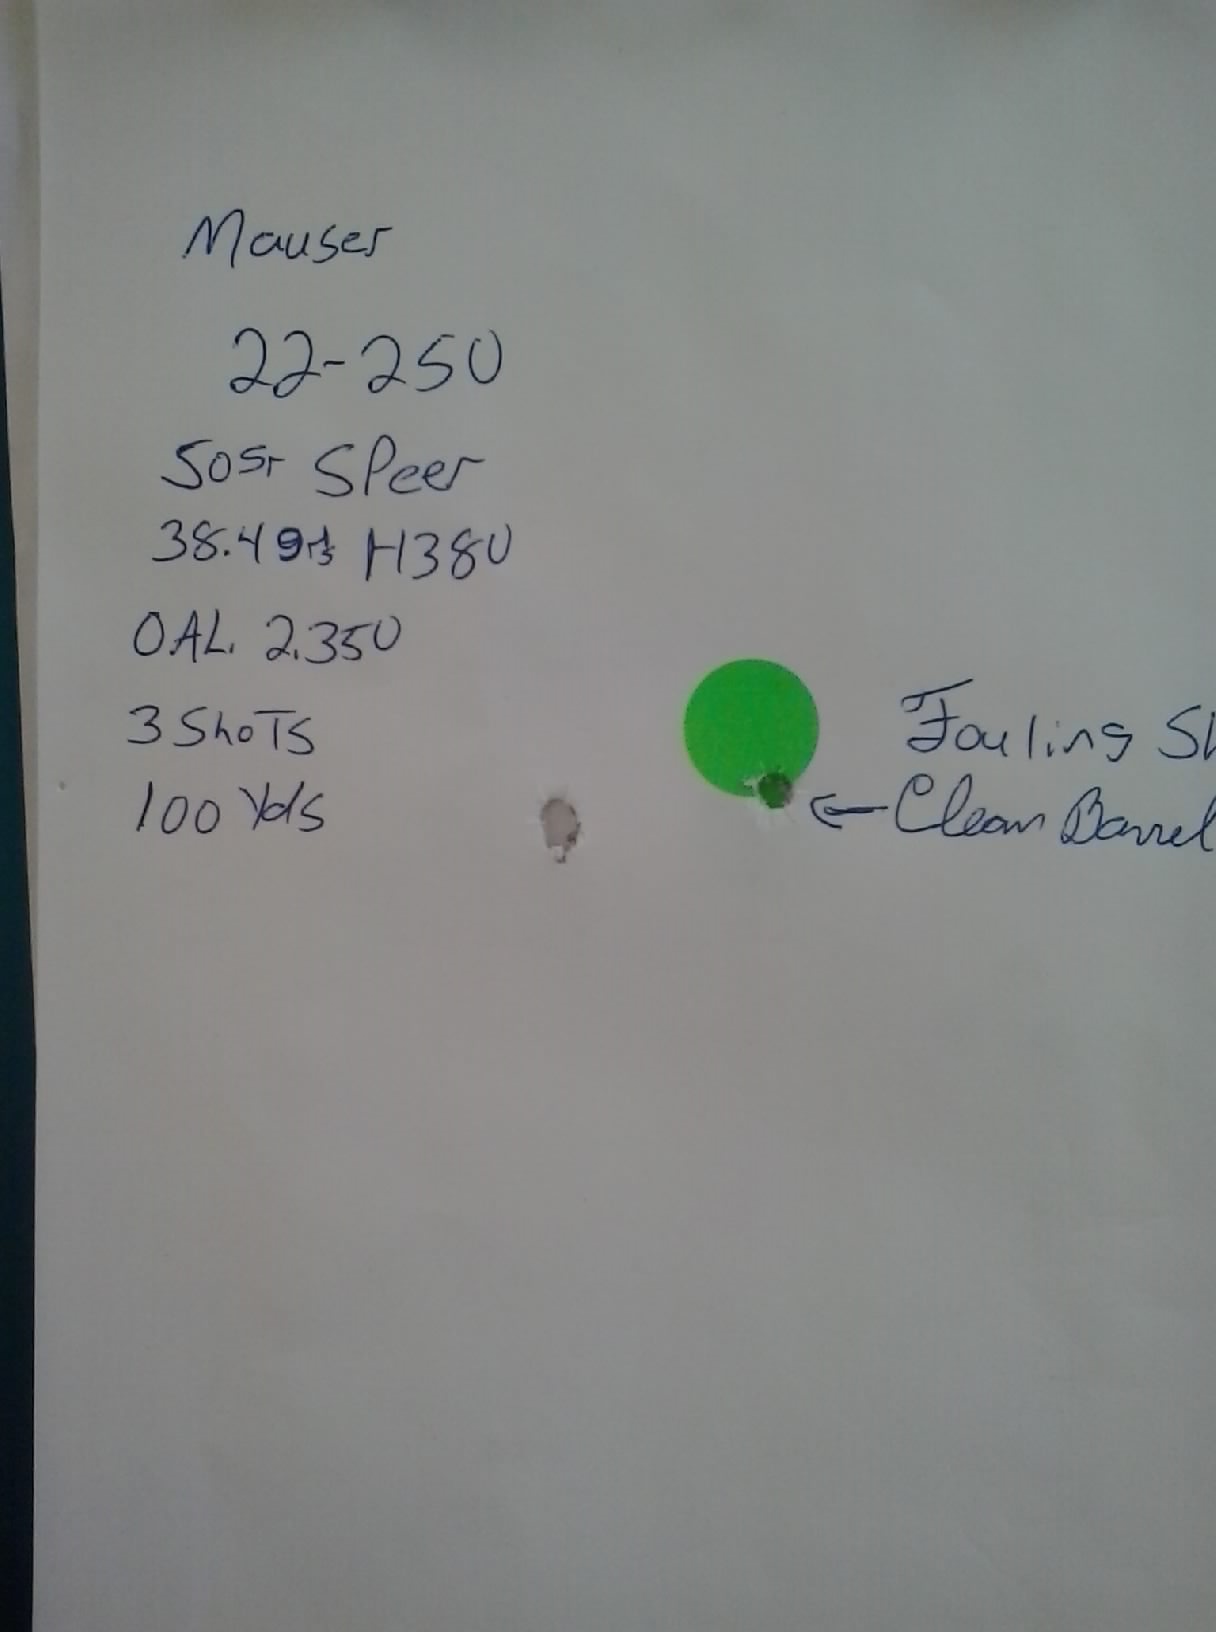 Mauser
22-250
50gr Speer
38.4 grs H380
OAL. 2.350
3 Shots
100 Yds
Fouling Sh
← Clean Barrel